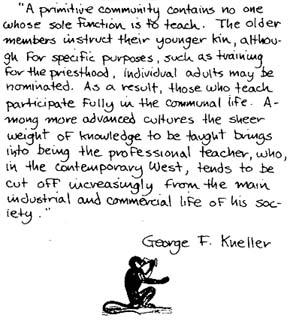 "A primitive community contains no one
whose sole function is to teach. The older
members instruct their younger kin, althou-
gh for specific purposes, such as training
for the priesthood, individual adults may be
nominated. As a result, those who teach
participate fully in the communal life. A-
mong more advanced cultures the sheer
weight of knowledge to be taught brings
into being the professional teacher, who,
in the contemporary West, tends to be
cut off increasingly from the main
industrial and commercial life of his soc-
iety."
George F. Kneller